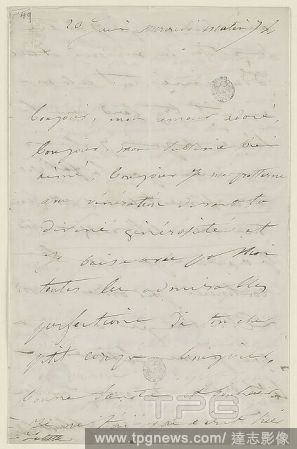 49
20 juin mercredi matin 7h
Bonjour, mon amour adoré
bonjour mon Victor bien
aimé bonjour je me prosterne
avec vénération devant ta
divine générosité et
je baise avec
toutes les admirables
perfections de ton
petit corps bonjour,
bonne santé
je ne t'ai pas écrit
TPG
www.tpgnews.com / 達志影像